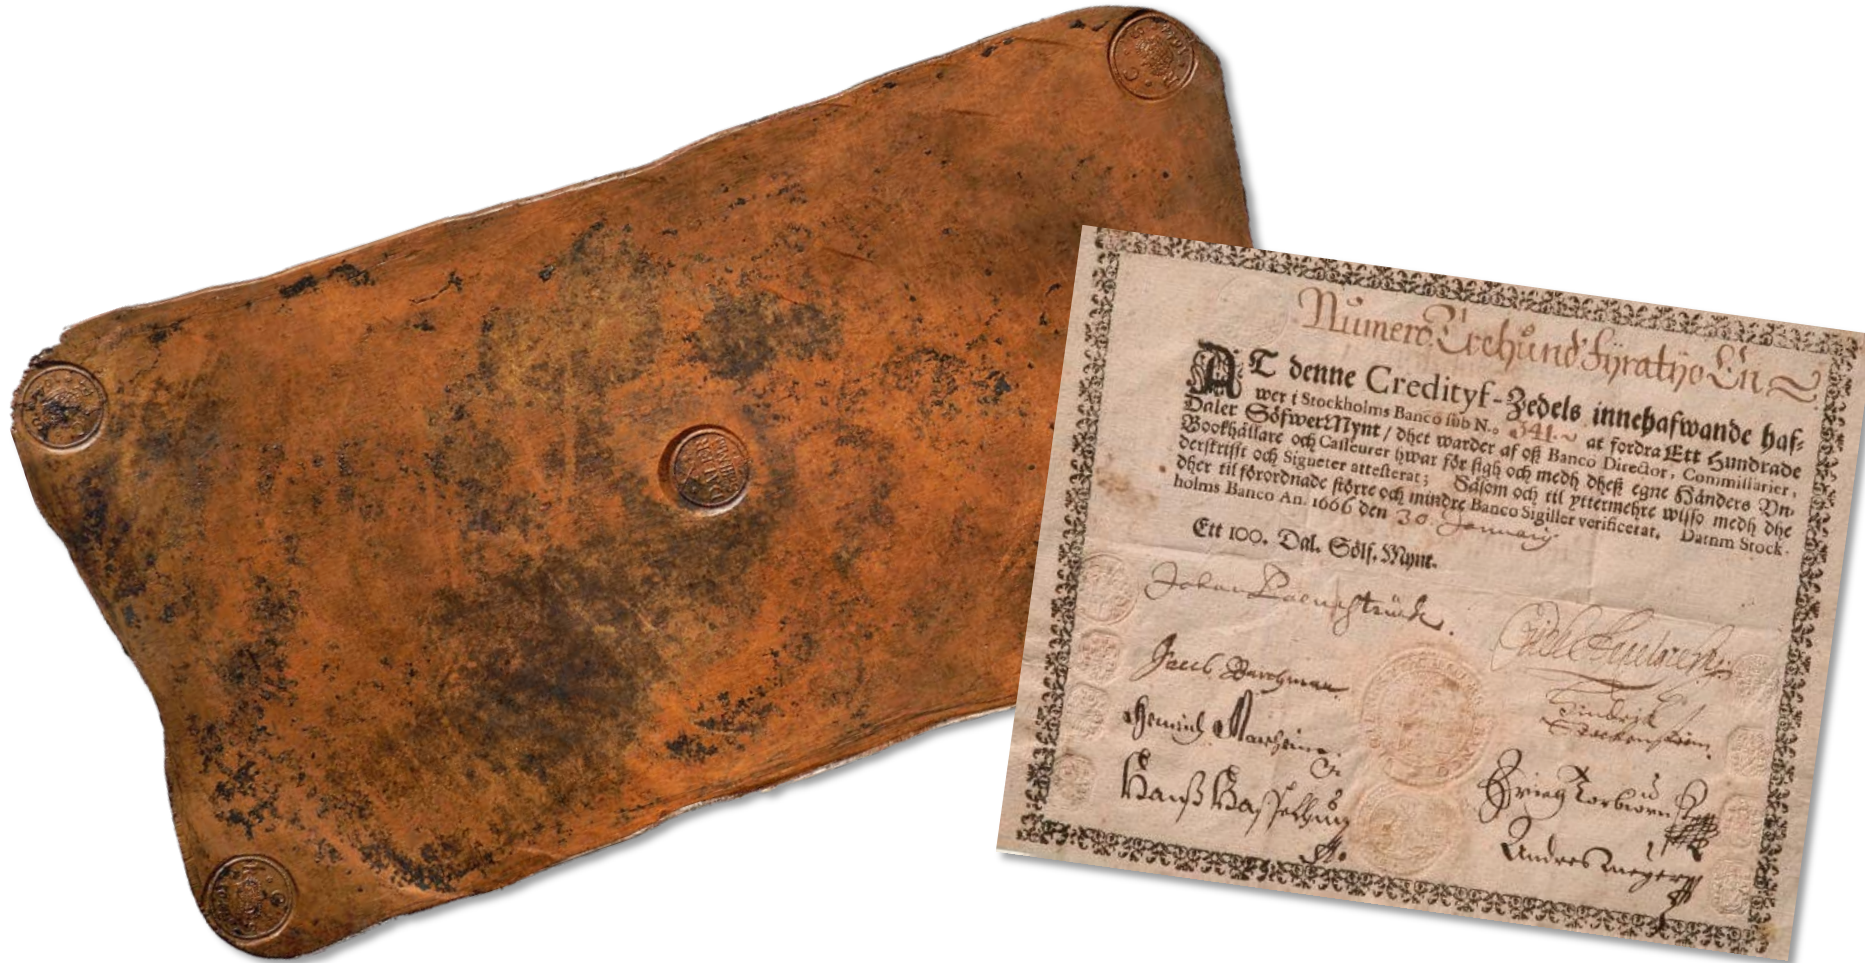 Numero Trehund Fyratijo En
AT denne Credityf-Zedels innehafwande haf-
wer i Stockholms Banco sub N.o 341. at fordra Ett Hundrade
Daler SölfwerMynt / dhet warder af oß Banco Director, Commissarier,
Bookhållare och Casseurer hwar för sigh och medh dheß egne Händers Vn-
derskrifft och Signeter attesterat; Såsom och til yttermehre wisso medh dhe
dher til förordnade större och mindre Banco Sigiller verificerat. Datum Stock-
holms Banco An. 1666 den 30. January
Ett 100. Dal. Sölf. Mynt.
Johan Palmstruck.
Jacob Barchman
Hanß
Andres Meyer